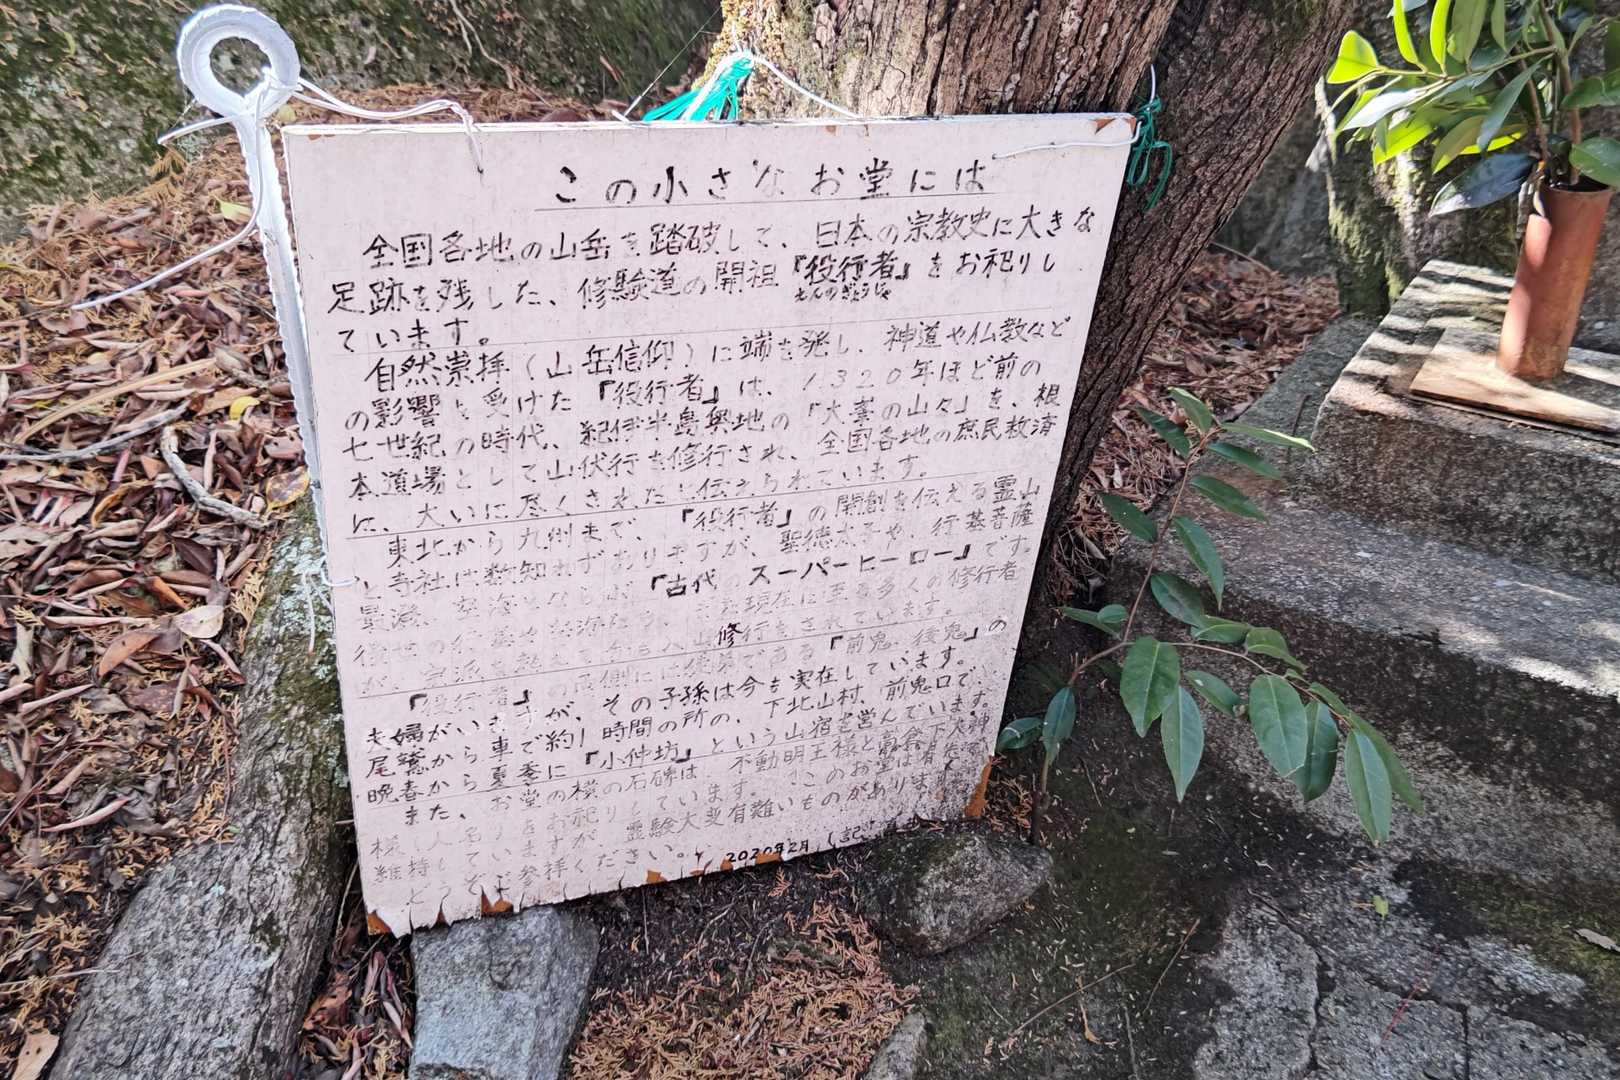 この小さなお堂には
全国各地の山岳を踏破して、日本の宗教史に大きな
足跡を残した、修験道の開祖『役行者』をお祀りし
えんのぎょうじゃ
ています。
自然崇拝(山岳信仰)に端を発し、神道や仏教など
の影響を受けた『役行者』は、1320年ほど前の
七世紀の時代、紀伊半島奥地の「大峯の山々」を、根
本道場として山伏行を修行され、全国各地の庶民救済
に、大いに尽くされたと伝えられています。
東北から九州まで、『役行者』の開創を伝える霊山
と寺社は数知れずありますが、聖徳太子や、行基菩薩
最澄、空海とならぶ、『古代のスーパーヒーロー』です。
後世の 現在に至る多くの修行者
が、宗派を 修行をされています。
『役行者』の両側には従弟である『前鬼、後鬼』の
夫婦がいますが、その子孫は今も実在しています。
尾鷲から車で約1時間の所の、下北山村、前鬼口で、
晩春から夏季に『小仲坊』という山宿を営んでいます。
また、お堂の横の石碑は、不動明王様と
様(人名)をお祀りしています。このお堂は
維持していますが、霊験大変有難いものがあります
どうぞご参拝ください。 2020年2月